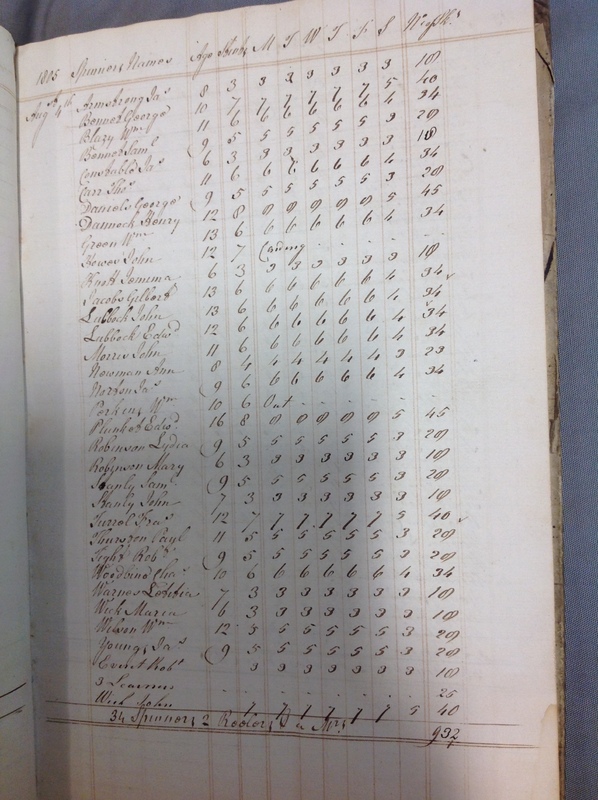 1805 Spinners Names Age M T W T F S No of Sks
Augst 4th Armstrong Jas 8 3 3 3 3 3 3 3 18
Bonner George 10 7 7 7 7 7 7 5 40
Blazy Wm 11 6 6 6 6 6 6 4 34
Bonner Saml 9 5 5 5 5 5 5 3 28
Constable Jas 6 3 3 3 3 3 3 3 18
Carr Thos 11 6 6 6 6 6 6 4 34
Daniels George 9 5 5 5 5 5 5 3 28
Dannock Henry 12 8 8 8 8 8 8 5 45
Green Wm 13 6 6 6 6 6 6 4 34
Howes John 12 7 Carding
Knott Jemima 6 3 3 3 3 3 3 3 18
Jacobs Gilbert 13 6 6 6 6 6 6 4 34
Lubbock John 13 6 6 6 6 6 6 4 34
Lubbock Edwd 12 6 6 6 6 6 6 4 34
Morris John 11 6 6 6 6 6 6 4 34
Newman Ann 8 4 4 4 4 4 4 3 23
Norton Jas 9 6 6 6 6 6 6 4 34
Perkins Wm 10 6 Out
Plunket Edwd 16 8 8 8 8 8 8 5 45
Robinson Lydia 9 5 5 5 5 5 5 3 28
Robinson Mary 6 3 3 3 3 3 3 3 18
Stanly Saml 9 5 5 5 5 5 5 3 28
Stanly John 7 3 3 3 3 3 3 3 18
Turrol Fras 12 7 7 7 7 7 7 5 40
Thurston 11 5 5 5 5 5 5 3 28
Tight Robt 9 5 5 5 5 5 5 3 28
Woodbine Chas 10 6 6 6 6 6 6 4 34
Warnes Letitia 7 3 3 3 3 3 3 3 18
Wick Maria 6 3 3 3 3 3 3 3 18
Wilson Wm 12 5 5 5 5 5 5 3 28
Young Jas 9 5 5 5 5 5 5 3 28
Everet Robt 3 3 3 3 3 3 18
3 Learners 25
Wick John 7 7 7 7 7 5 40
34 Spinners 2 Reelers 932